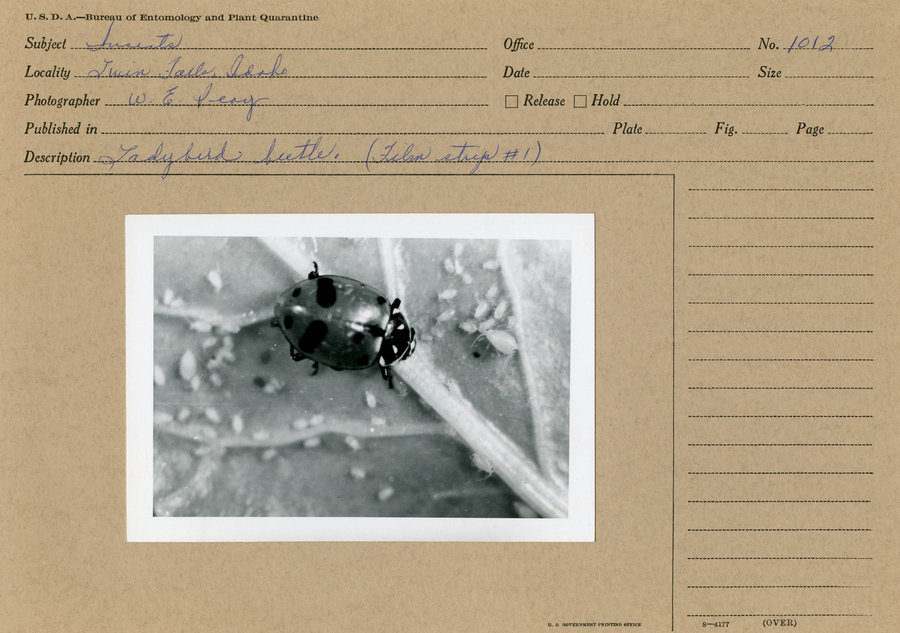 U. S. D. A.—Bureau of Entomology and Plant Quarantine
Subject Insects Office No. 1012
Locality Twin Falls, Idaho Date Size
Photographer W. E. Peay Release Hold
Published in Plate Fig. Page
Description Ladybird beetle. (Film strip #1)
U. S. GOVERNMENT PRINTING OFFICE 8—4177 (OVER)